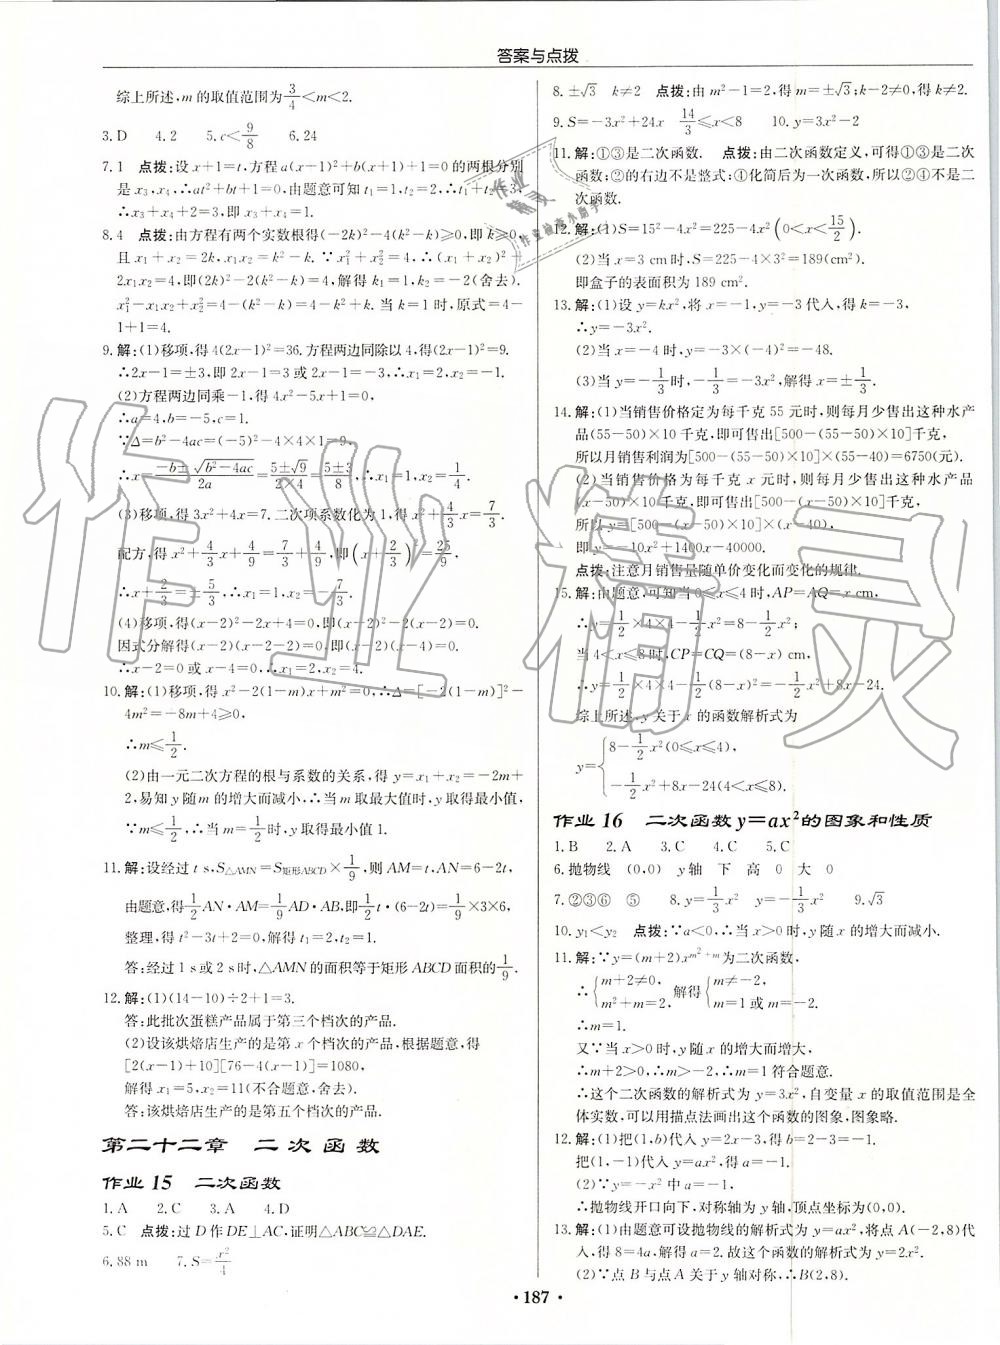 答案与点拨
综上所述,m的取值范围为3/4<m<2.
3.D 4.2 5.c<9/8 6.24
7.1 点拨:设x+1=t,方程a(x-1)²+b(x+1)+1=0的两根分别
是x₃,x₄,∴at²+bt+1=0,由题意可知t₁=1,t₂=2,∴t₁+t₂=3,
∴x₃+x₄+2=3,即x₃+x₄=1.
8.4 点拨:由方程有两个实数根得(-2k)²-4(k²-k)≥0,即k≥0,
且x₁+x₂=2k,x₁x₂=k²-k.∵x₁²+x₂²=4,∴(x₁+x₂)²-
2x₁x₂=4,即(2k)²-2(k²-k)=4,解得k₁=1,k₂=-2(舍去).
x₁²-x₁x₂+x₂²=4-(k²-k)=4-k²+k.当k=1时,原式=4-
1+1=4.
9.解:(1)移项,得4(2x-1)²=36.方程两边同除以4,得(2x-1)²=9.
∴2x-1=±3,即2x-1=3或2x-1=-3,∴x₁=2,x₂=-1.
(2)方程两边同乘-1,得4x²-5x+1=0,
∴a=4,b=-5,c=1.
∵Δ=b²-4ac=(-5)²-4×4×1=9,
∴x=(-b±√(b²-4ac))/2a=(5±√9)/(2×4)=(5±3)/8,∴x₁=1,x₂=1/4.
(3)移项,得3x²+4x=7,二次项系数化为1,得x²+4/3x=7/3.
配方,得x²+4/3x+4/9=7/3+4/9,即(x+2/3)²=25/9,
∴x+2/3=±5/3,∴x₁=1,x₂=-7/3.
(4)移项,得(x-2)²-2x+4=0,即(x-2)²-2(x-2)=0.
因式分解得(x-2)(x-2-2)=0,即(x-2)(x-4)=0.
∴x-2=0或x-4=0,∴x₁=2,x₂=4.
10.解:(1)移项,得x²-2(1-m)x+m²=0,∴Δ=[-2(1-m)]²-
4m²=-8m+4≥0,
∴m≤1/2.
(2)由一元二次方程的根与系数的关系,得y=x₁+x₂=-2m+
2,易知y随m的增大而减小,∴当m取最大值时,y取得最小值,
∵m≤1/2,∴当m=1/2时,y取得最小值1.
11.解:设经过t s,S△AMN=S矩形ABCD×1/9,则AM=t,AN=6-2t,
由题意,得1/2AN·AM=1/9AD·AB,即1/2t·(6-2t)=1/9×3×6,
整理,得t²-3t+2=0,解得t₁=1,t₂=2.
答:经过1 s或2 s时,△AMN的面积等于矩形ABCD面积的1/9.
12.解:(1)(14-10)÷2+1=3.
答:此批次蛋糕产品属于第三个档次的产品.
(2)设该烘焙店生产的是第x个档次的产品,根据题意,得
[2(x-1)+10][76-4(x-1)]=1080,
解得x₁=5,x₂=11(不合题意,舍去).
答:该烘焙店生产的是第五个档次的产品.
第二十二章 二次函数
作业15 二次函数
1.A 2.C 3.A 4.D
5.C 点拨:过D作DE⊥AC,证明△ABC≌△DAE.
6.88 m 7.S=x²/4
8.±√3 k≠2 点拨:由m²-1=2,得m=±√3;k-2≠0,得k≠2.
9.S=-3x²+24x 14/3≤x<8 10.y=3x²-2
11.解:①③是二次函数. 点拨:由二次函数定义,可得①③是二次
函数;②的右边不是整式;④化简后为一次函数,所以②④不是二
次函数.
12.解:(1)S=15²-4x²=225-4x²(0<x<15/2).
(2)当x=3 cm时,S=225-4×3²=189(cm²).
即盒子的表面积为189 cm².
13.解:(1)设y=kx²,将x=-1,y=-3代入,得k=-3,
∴y=-3x².
(2)当x=-4时,y=-3×(-4)²=-48.
(3)当y=-1/3时,-1/3=-3x²,解得x=±1/3.
14.解:(1)当销售价格定为每千克55元时,则每月少售出这种水产
品(55-50)×10千克,即可售出[500-(55-50)×10]千克,
所以月销售利润为[500-(55-50)×10]×(55-40)=6750(元).
(2)当销售价格为每千克x元时,则每月少售出这种水产品
(x-50)×10千克,即可售出[500-(x-50)×10]千克,
所以y=[500-(x-50)×10]×(x-40),
即y=-10x²+1400x-40000.
点拨:注意月销售量随单价变化而变化的规律.
15.解:由题意,可知当0≤x≤4时,AP=AQ=x cm,
∴y=1/2×4×4-1/2x²=8-1/2x²;
当4<x≤8时,CP=CQ=(8-x)cm,
∴y=1/2×4×4-1/2(8-x)²=-1/2x²+8x-24.
综上所述,y关于x的函数解析式为
y={8-1/2x²(0≤x≤4),
-1/2x²+8x-24(4<x≤8).
作业16 二次函数y=ax²的图象和性质
1.B 2.A 3.C 4.C 5.C
6.抛物线 (0,0) y轴 下 高 0 大 0
7.②③⑥ ⑤ 8.y=1/3x² y=-1/3x² 9.√3
10.y₁<y₂ 点拨:∵a<0,∴当x>0时,y随x的增大而减小.
11.解:∵y=(m+2)x^(m²+m)为二次函数,
∴{m+2≠0, m²+m=2, 解得{m≠-2, m=1或m=-2.
∴m=1.
又∵当x>0时,y随x的增大而增大,
∴m+2>0,∴m>-2,∴m=1符合题意.
∴这个二次函数的解析式为y=3x²,自变量x的取值范围是全
体实数,可以用描点法画出这个函数的图象,图象略.
12.解:(1)把(1,b)代入y=2x-3,得b=2-3=-1.
把(1,-1)代入y=ax²,得a=-1.
(2)∵y=-x²中,a=-1<0,
∴抛物线开口向下,对称轴为y轴,顶点坐标为(0,0).
13.解:(1)由题意可设抛物线的解析式为y=ax²,将点A(-2,8)代
入,得8=4a,解得a=2.故这个函数的解析式为y=2x².
(2)∵点B与点A关于y轴对称,∴B(2,8).
·187·
作业精灵
作业精灵
作业检查小助手